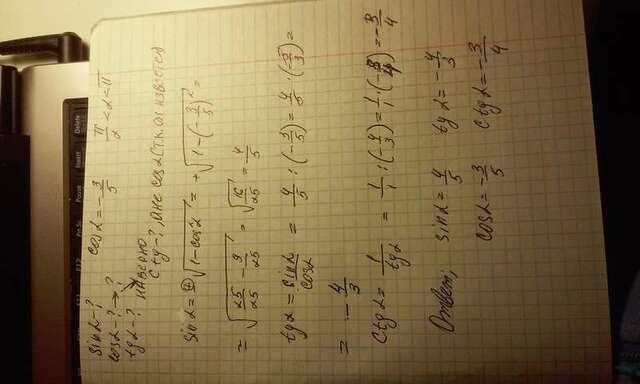 sin α - ?
cos α - ? → ?
tg α - ?
cos α = -3/5
π/2 < α < π
наверно ctg - ?, а не cos α (т.к. он известен)
sin α = ⊕√(1-cos²α) = +√(1-(-3/5)²) =
= √(25/25 - 9/25) = √(16/25) = 4/5
tg α = sin α/cos α = 4/5 : (-3/5) = 4/5 · (-5/3) =
= -4/3
ctg α = 1/tg α = 1/1 : (-4/3) = 1/1 · (-3/4) = -3/4
Ответ: sin α = 4/5 tg α = -4/3
cos α = -3/5 ctg α = -3/4
Delete